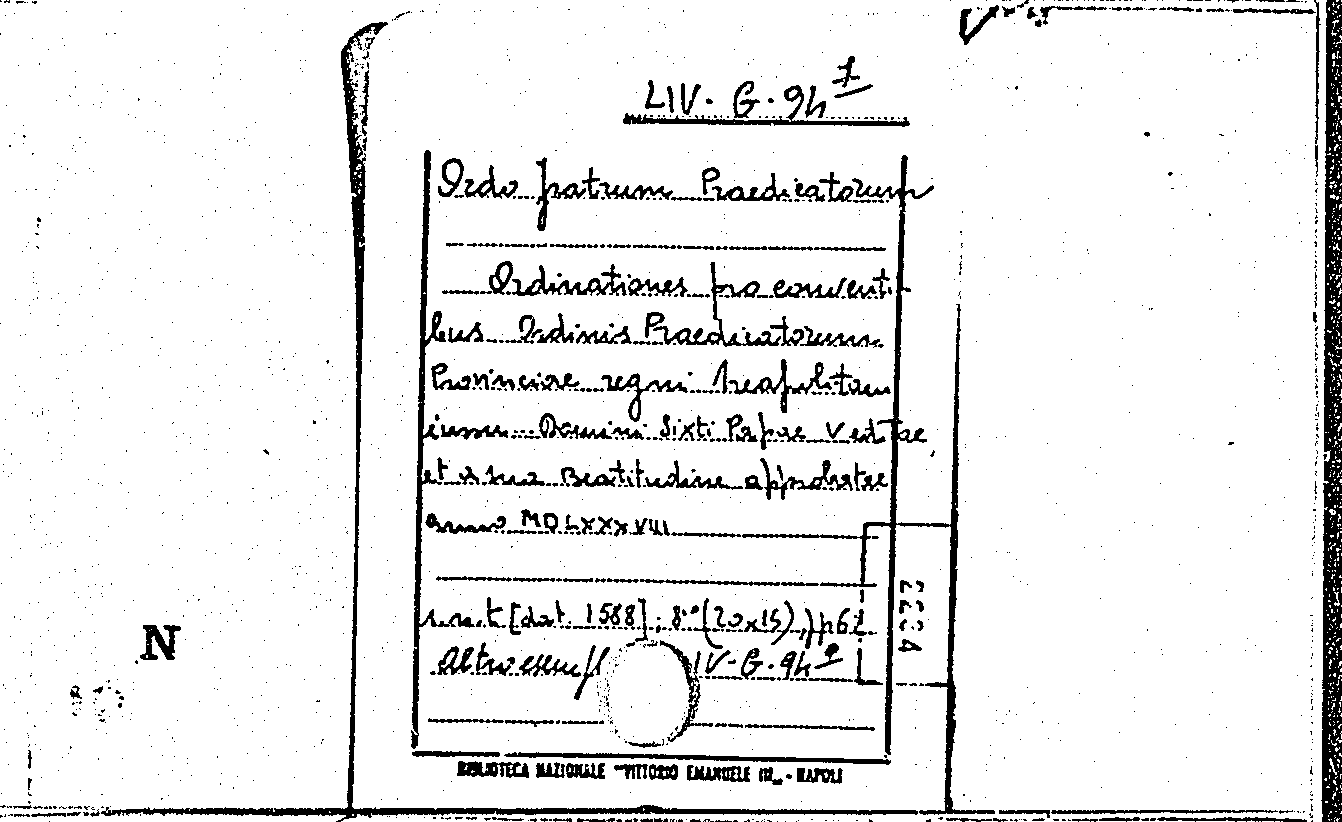 LIV. G. 94 1
Ordo fratrum Praedicatorum
Ordinationes pro conventi-
bus Ordinis Praedicatorum
Provinciae regni Neapolitani
iussu... Domini Sixti Papae V editae
et a sua Beatitudine approbatae
anno MDLXXXVIII
s.n.t. [dat. 1588]; 8° (20x15), pp 62
Altro esempl IV-G.94 2
2224
BIBLIOTECA NAZIONALE "VITTORIO EMANUELE III" - NAPOLI
N